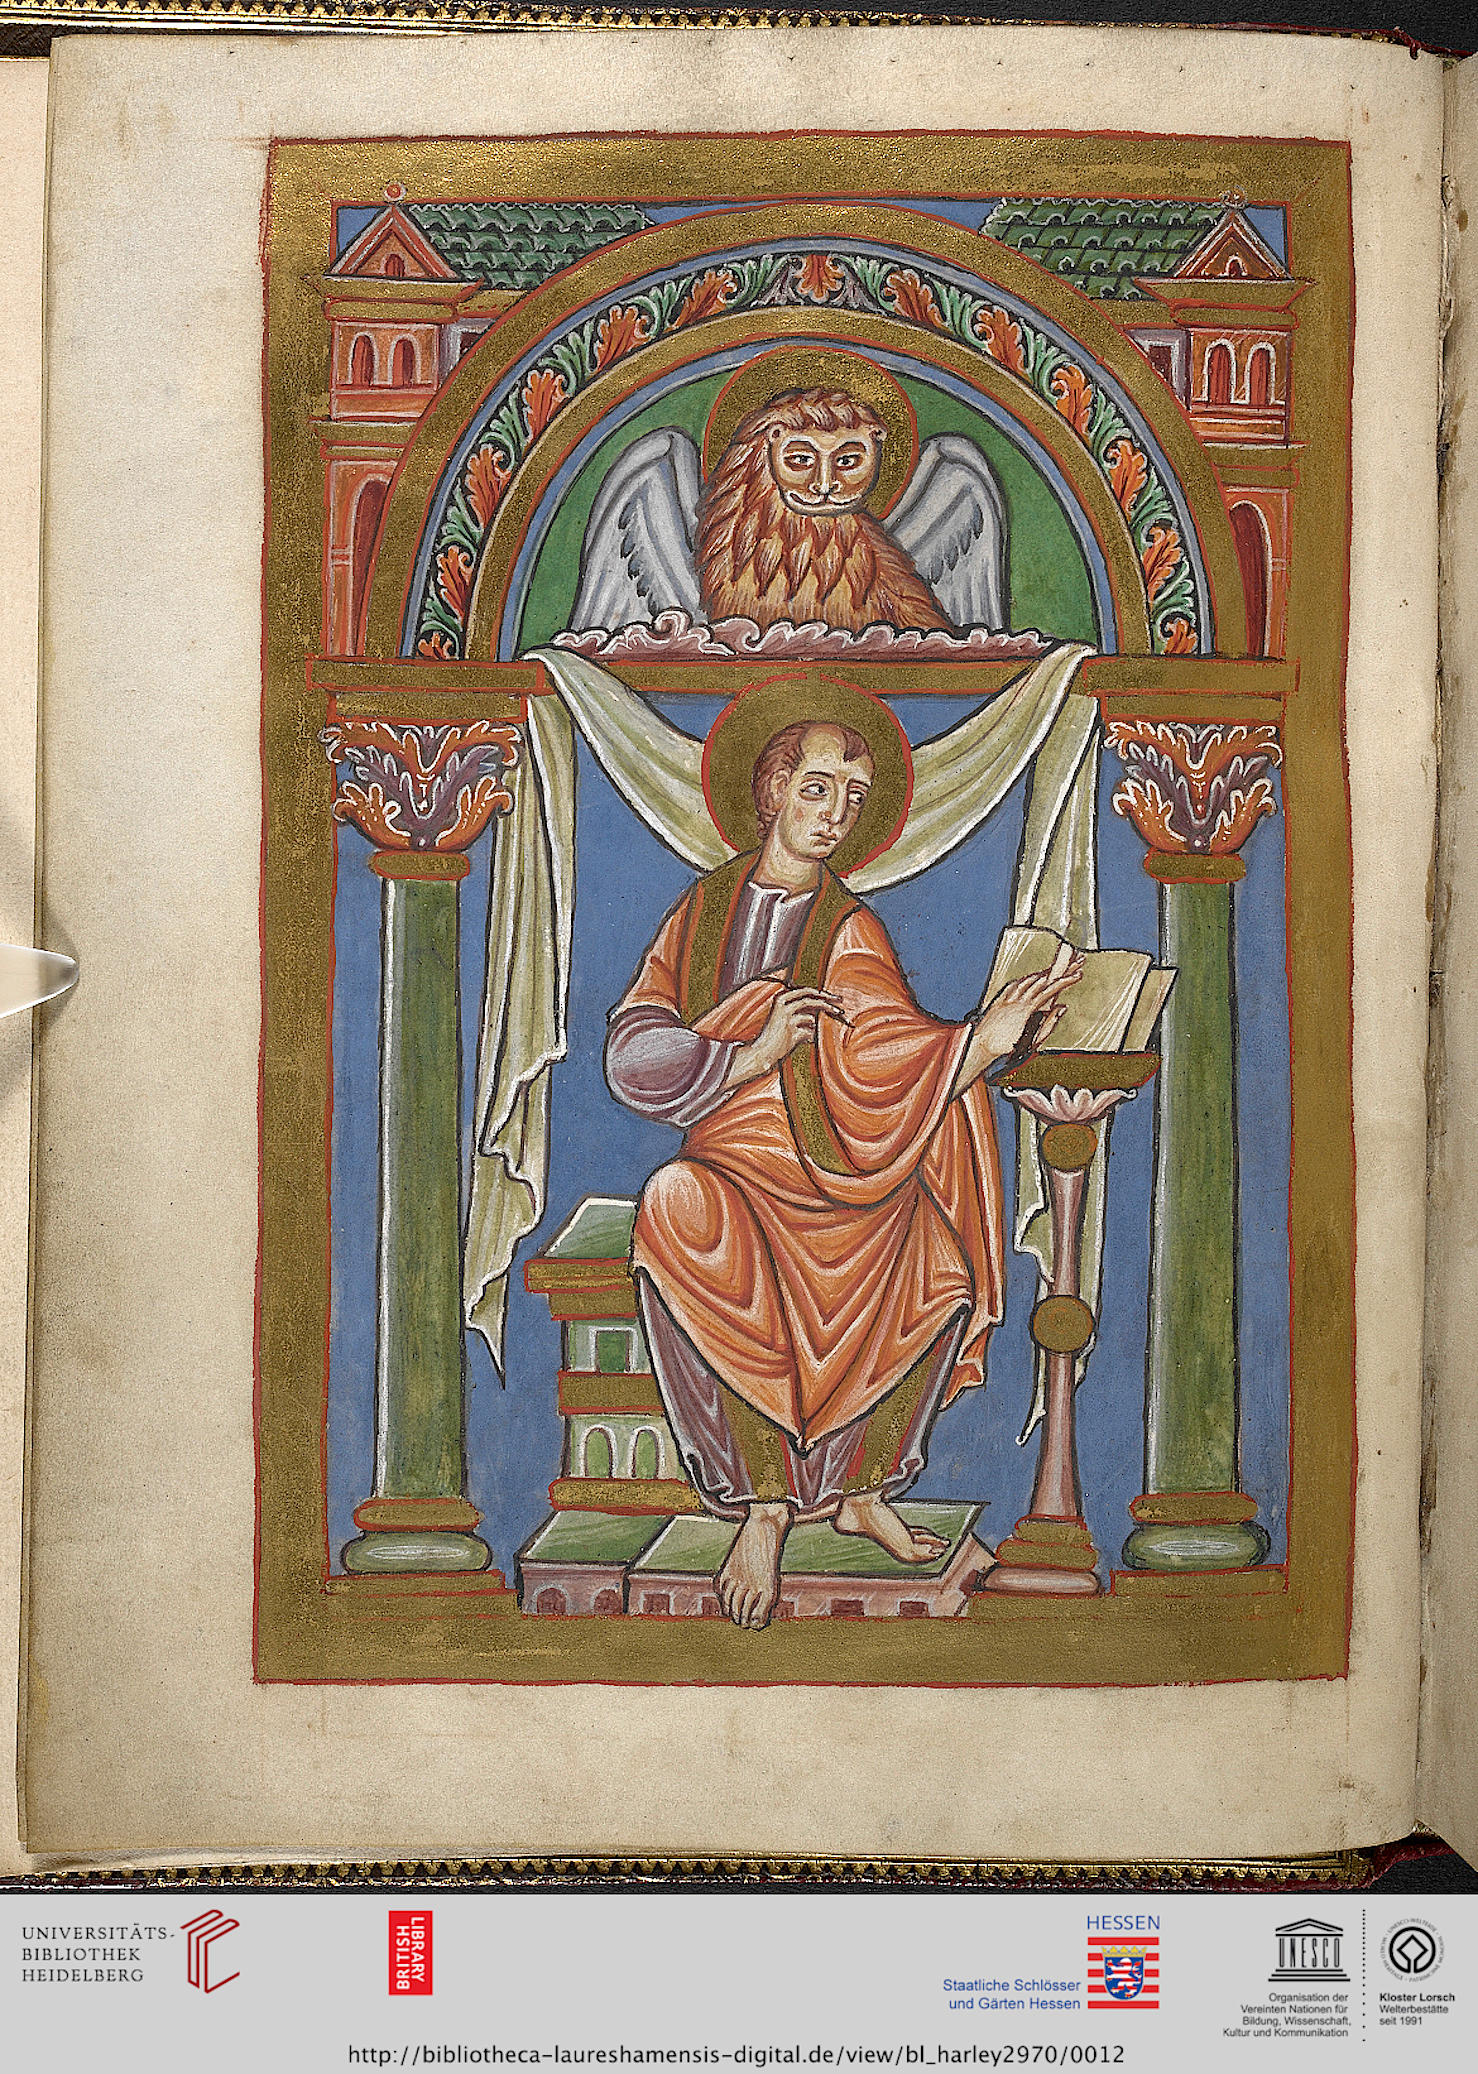 UNIVERSITÄTS-
BIBLIOTHEK
HEIDELBERG
BRITISH
LIBRARY
HESSEN
Staatliche Schlösser
und Gärten Hessen
UNESCO
Organisation der
Vereinten Nationen für
Bildung, Wissenschaft,
Kultur und Kommunikation
Kloster Lorsch
Welterbestätte
seit 1991
http://bibliotheca-laureshamensis-digital.de/view/bl_harley2970/0012